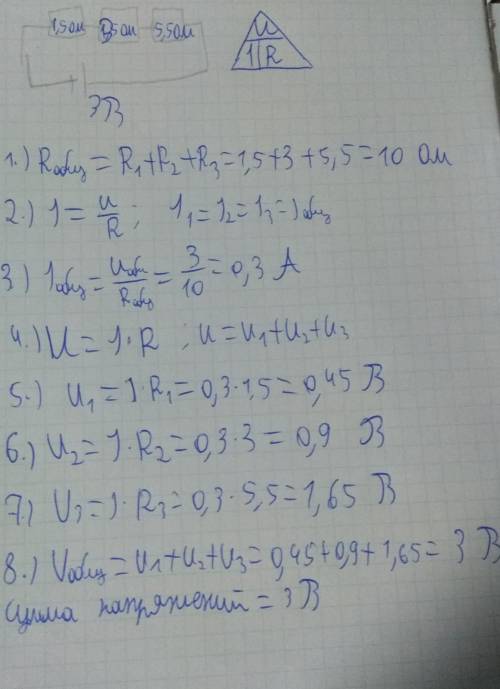 1,5 ОМ 3 ОМ 5,5 ОМ
U
I R
3В
1.) Rобщ = R₁+R₂+R₃=1,5+3+5,5=10 Ом
2.) I = U/R; I₁=I₂=I₃=Iобщ
3) Iобщ = Uобщ/Rобщ = 3/10 = 0,3 А
4.) U = I·R ; U=U₁+U₂+U₃
5.) U₁ = I·R₁=0,3·1,5=0,45 В
6.) U₂= I·R₂=0,3·3=0,9 В
7.) U₃= I·R₃=0,3·5,5=1,65 В
8.) Uобщ=U₁+U₂+U₃=0,45+0,9+1,65= 3 В
сумма напряжений = 3В